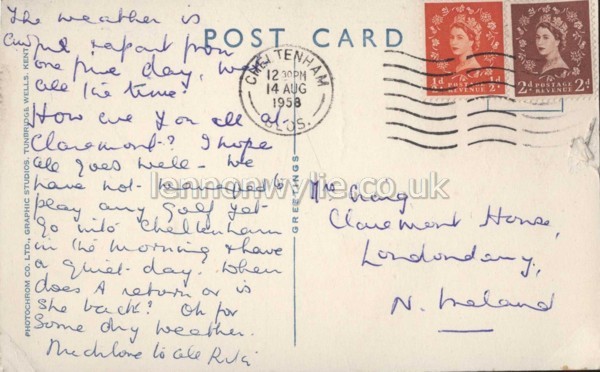 The weather is
awful apart from
one fine day, wet
all the time!
How are you all at
Claremont? I hope
all goes well - we
have not managed to
play any golf yet -
go into Cheltenham
in the morning & have
a quiet day. When
does A return or is
she back? Oh for
some dry weather.
Much love to all
POST CARD
CHELTENHAM
12 30PM
14 AUG
1958
GLOS.
½d POSTAGE REVENUE ½d
2d POSTAGE REVENUE 2d
Mrs Craig
Claremont House,
Londonderry,
N. Ireland
GREETINGS
PHOTOCHROM CO. LTD., GRAPHIC STUDIOS, TUNBRIDGE WELLS, KENT
lennonwylie.co.uk